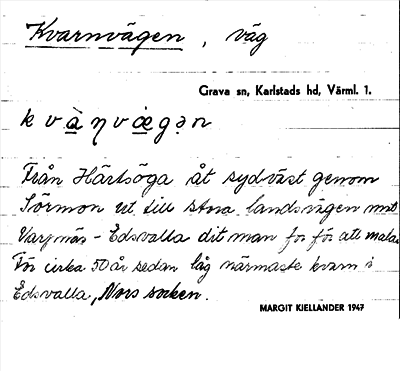 Kvarnvägen, väg
Grava sn, Karlstads hd, Värml. 1.
kvàηvœ̀gən
Från Härtsöga åt sydväst genom
Sörmon ut till stora landsvägen mot
Vargmän - Edsvalla dit man for för att mala.
För cirka 50 år sedan låg närmaste kvarn i
Edsvalla, Nors socken.
MARGIT KJELLANDER 1947